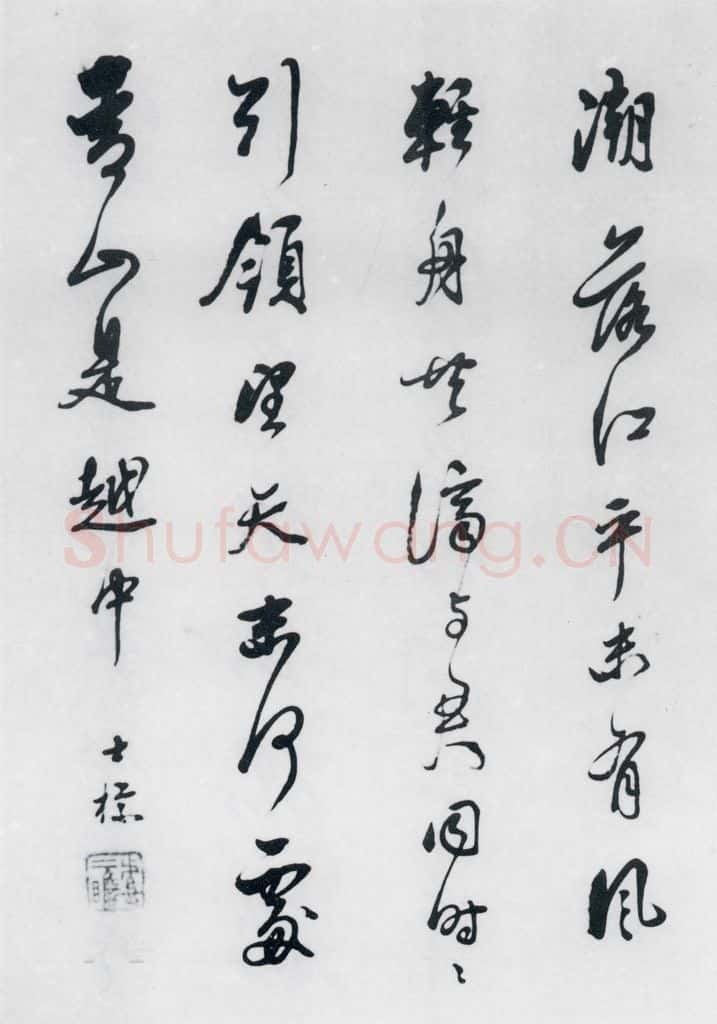 潮落江平未有風
輕舟共濟與君同時〻
引領望天末何處
青山是越中
士標
Shufawang.CN